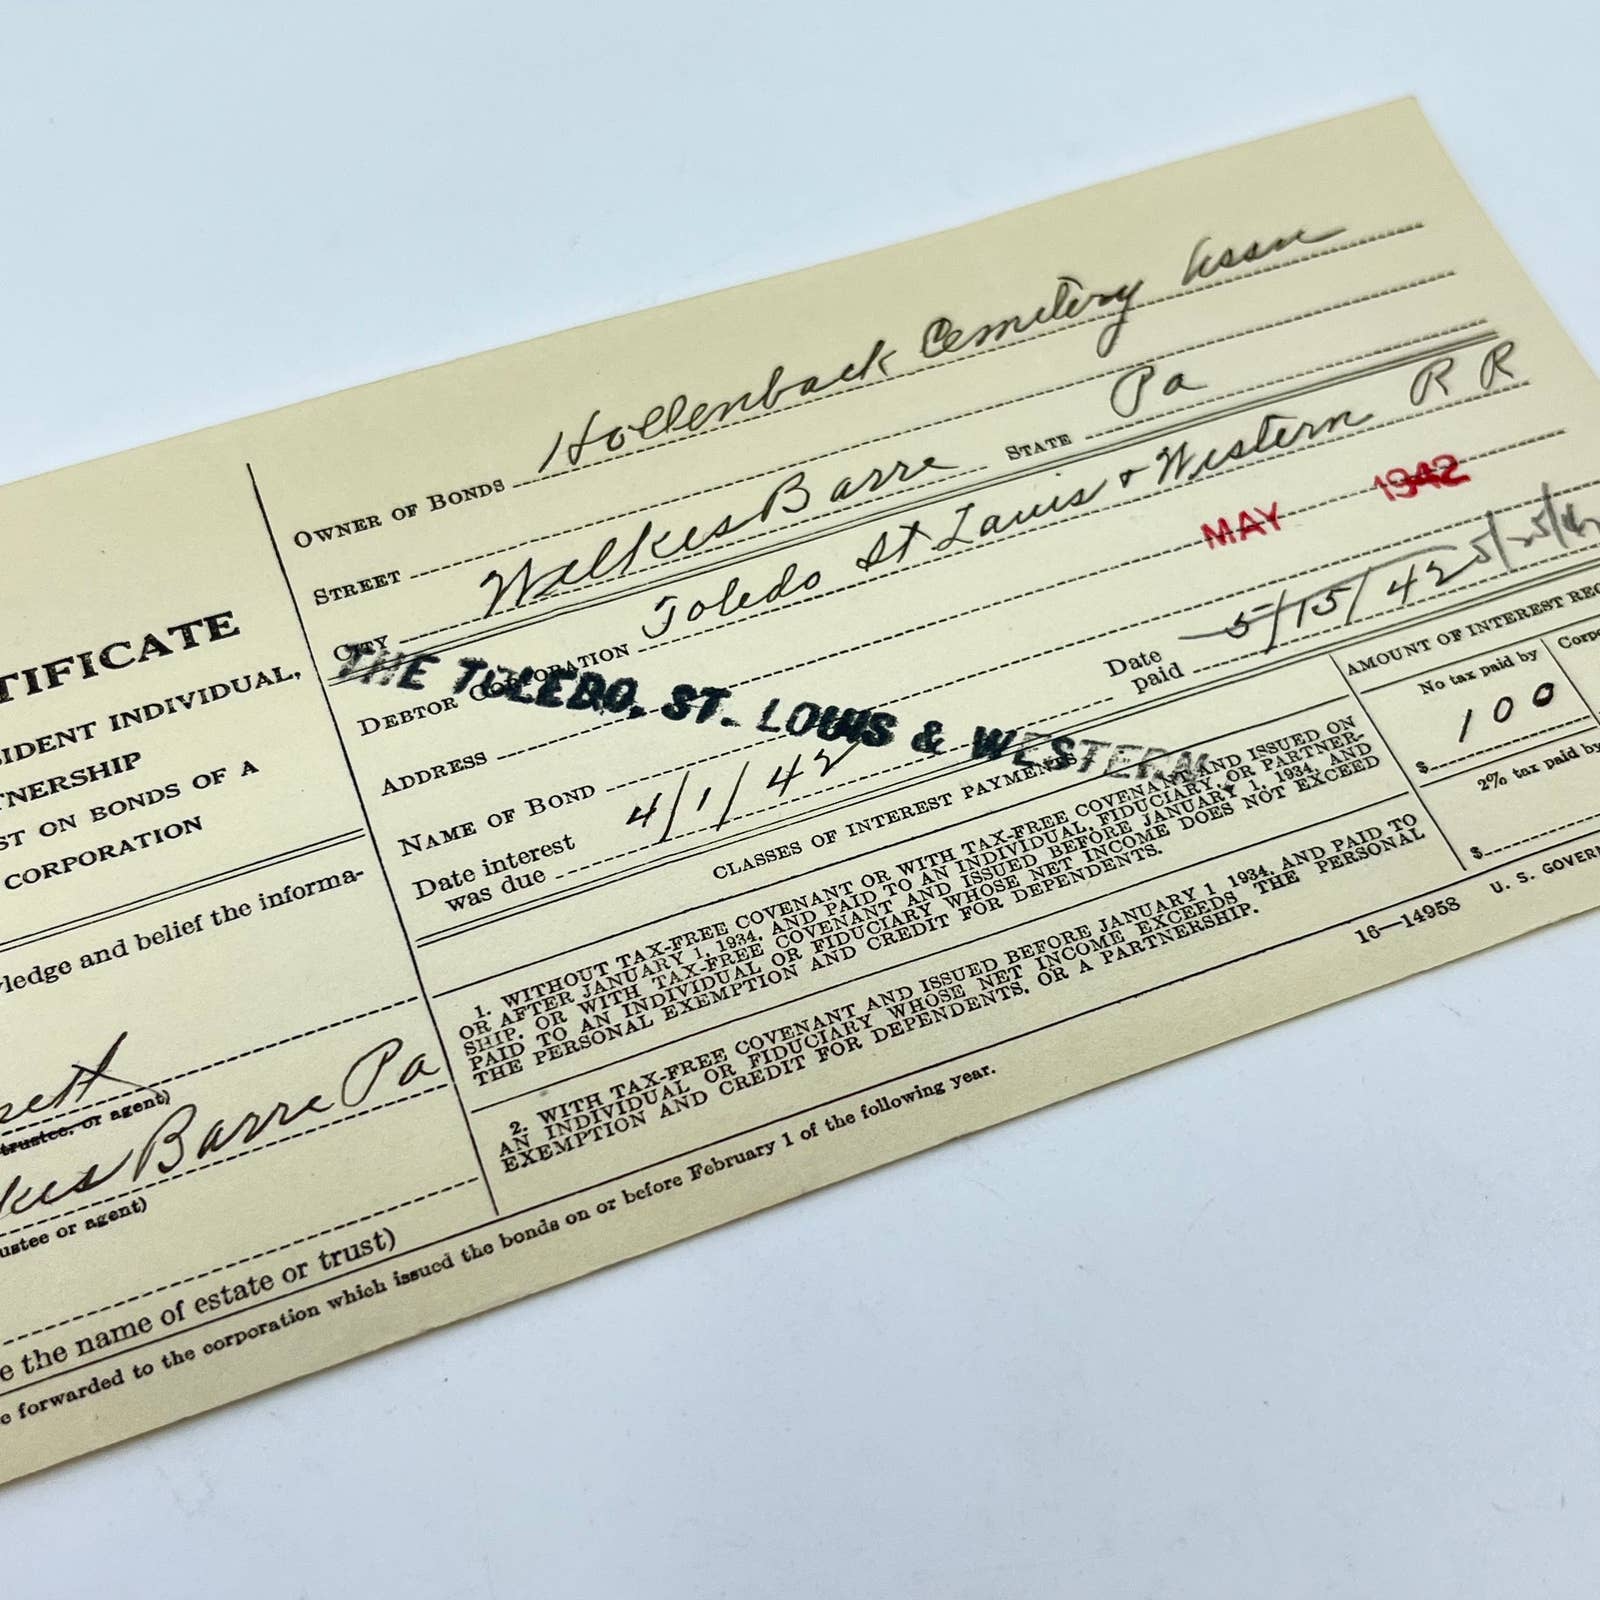 TIFICATE
SIDENT INDIVIDUAL,
TNERSHIP
ST ON BONDS OF A
CORPORATION
ledge and belief the informa-
trustee, or agent)
kes Barre Pa
ustee or agent)
e the name of estate or trust)
e forwarded to the corporation which issued the bonds on or before February 1 of the following year.
OWNER OF BONDS Hollenback Cemetery Assn
STREET
CITY Wilkes Barre STATE Pa
DEBTOR CORPORATION Toledo St Louis & Western R R
THE TOLEDO, ST. LOUIS & WESTERN
ADDRESS MAY 1942
NAME OF BOND
Date interest was due 4/1/42 Date paid 5/15/42
CLASSES OF INTEREST PAYMENTS
AMOUNT OF INTEREST REC
1. WITHOUT TAX-FREE COVENANT OR WITH TAX-FREE COVENANT AND ISSUED ON
OR AFTER JANUARY 1, 1934, AND PAID TO AN INDIVIDUAL, FIDUCIARY, OR PARTNER-
SHIP. OR WITH TAX-FREE COVENANT AND ISSUED BEFORE JANUARY 1, 1934, AND
PAID TO AN INDIVIDUAL OR FIDUCIARY WHOSE NET INCOME DOES NOT EXCEED
THE PERSONAL EXEMPTION AND CREDIT FOR DEPENDENTS.
No tax paid by Corpo
$ 100
2. WITH TAX-FREE COVENANT AND ISSUED BEFORE JANUARY 1 1934, AND PAID TO
AN INDIVIDUAL OR FIDUCIARY WHOSE NET INCOME EXCEEDS THE PERSONAL
EXEMPTION AND CREDIT FOR DEPENDENTS, OR A PARTNERSHIP.
2% tax paid by
$
16—14958 U. S. GOVERN